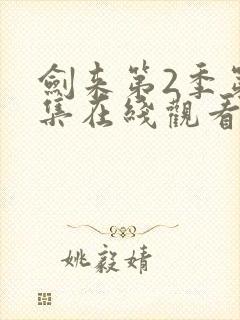 劍来第2季第
集在綫觀看
姚毅婧